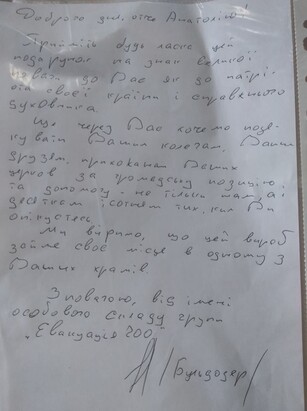 Доброго дня, отче Анатолію!
Прийміть будь ласка цей
подарунок на знак великої
поваги до Вас як до патрі-
ота своєї країни і справжнього
духовника.
Ще через Вас хочемо подя-
кувати Вашим колегам, Вашим
друзям, прихожанам Ваших
церков за громадську позицію
та допомогу не тільки нам, а і
десяткам і сотням тих, ким Ви
опікуєтесь.
Ми віримо, що цей виріб
займе своє місце в одному з
Ваших храмів
З повагою, від імені
особового складу групи
"Евакуація 200"
/Бульдозер/